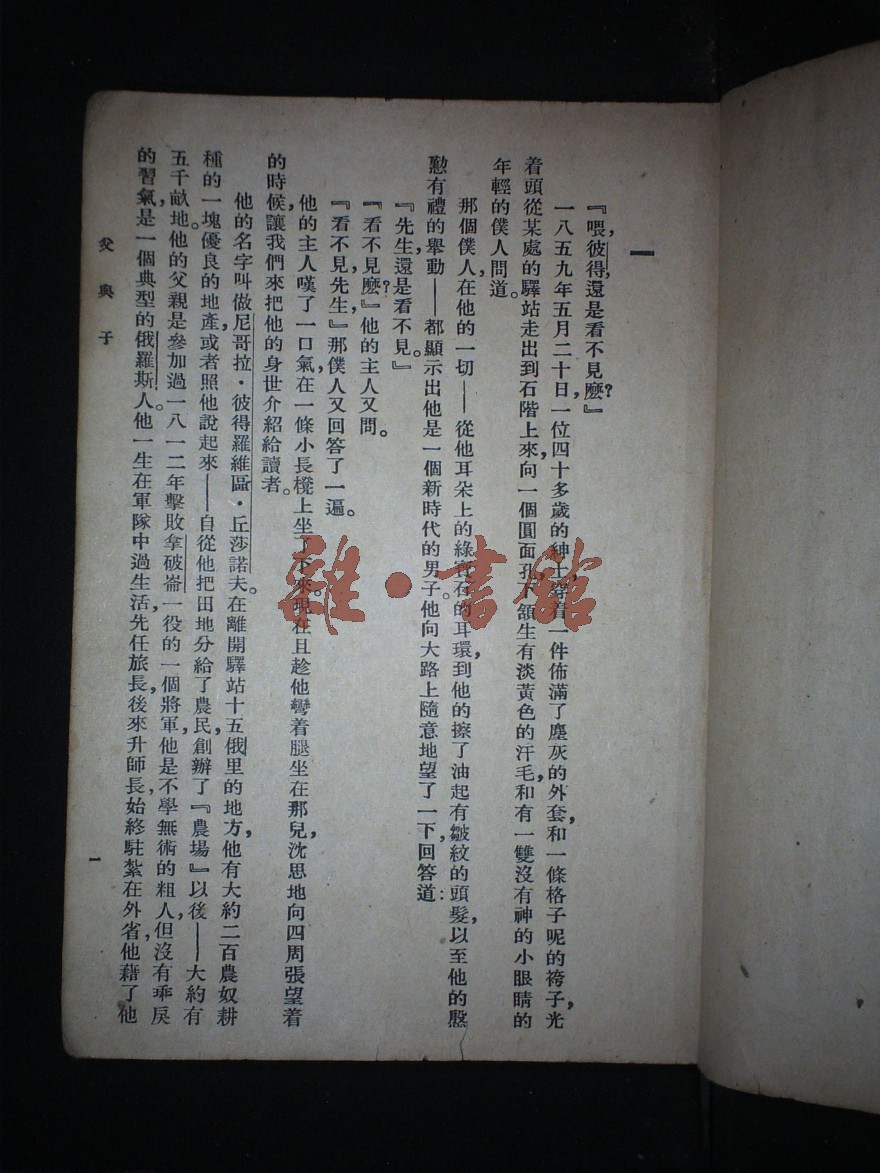 一
『喂，彼得，還是看不見麽？』
一八五九年五月二十日，一位四十多歲的紳士，穿着一件佈滿了塵灰的外套，和一條格子呢的袴子，光
着頭從某處的驛站走出到石階上來，向一個圓面孔，下頷生有淡黃色的汗毛，和有一雙沒有神的小眼睛的
年輕的僕人問道。
那個僕人，在他的一切——從他耳朵上的綠寶石的耳環，到他的擦了油起有皺紋的頭髮，以至他的慇
懃有禮的舉動——都顯示出他是一個新時代的男子。他向大路上隨意地望了一下，回答道：
『先生，還是看不見。』
『看不見麽？』他的主人又問。
『看不見，先生，』那僕人又回答了一遍。
他的主人嘆了一口氣，在一條小長櫈上坐了下來。現在且趁他彎着腿坐在那兒，沈思地向四周張望着
的時候，讓我們來把他的身世介紹給讀者。
他的名字叫做尼哥拉·彼得羅維區·丘莎諾夫。在離開驛站十五俄里的地方，他有大約二百農奴耕
種的一塊優良的地產，或者照他說起來——自從他把田地分給了農民，創辦了『農場』以後——大約有
五千畝地。他的父親是參加過一八一二年擊敗拿破崙一役的一個將軍，他是不學無術的粗人，但沒有乖戾
的習氣，是一個典型的俄羅斯人。他一生在軍隊中過生活，先任旅長，後來升師長，始終駐紮在外省，他藉了他
父與子
一
雜·書館